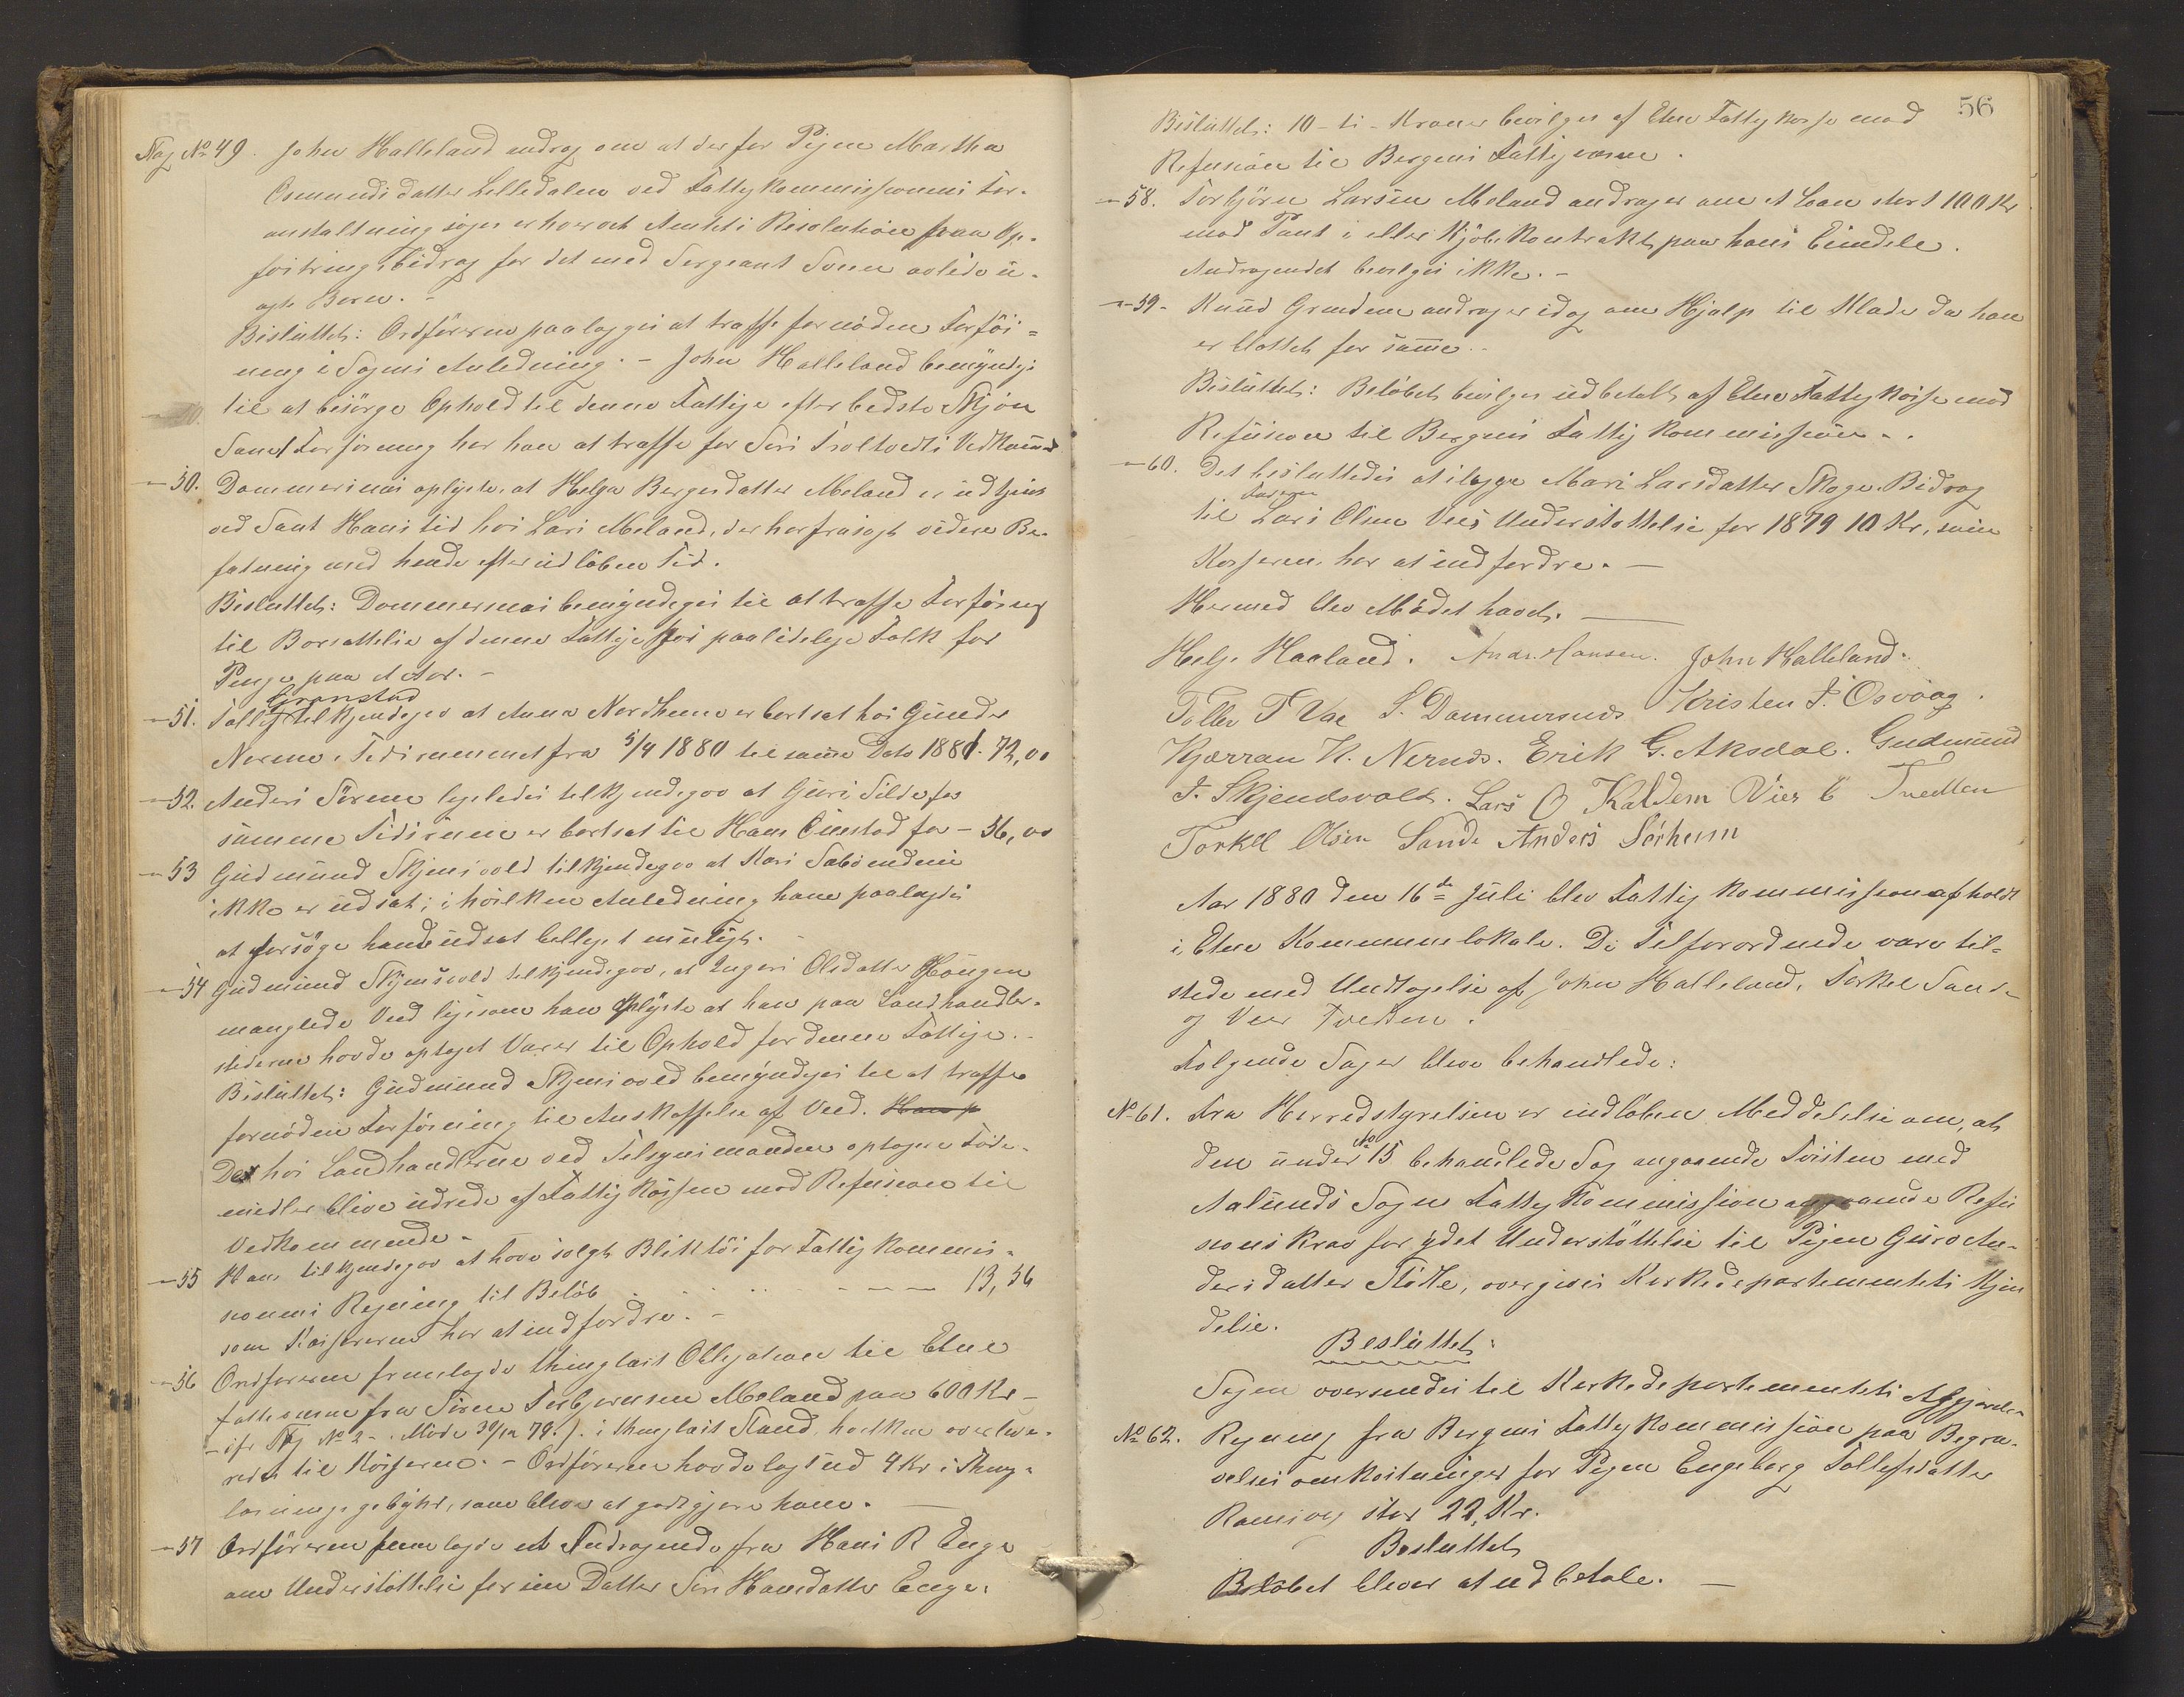 Sag No 49. John Halleland androg om at der for Pigen Martha
Osmundsdatter Lilledalen ved Fattigkommissionens For-
anstaltning søges erhvervet Amtets Resolution paa Op-
fostringsbidrag for det med Sergeant Sveen avlede u-
ægte Barn. -
Besluttet: Ordføreren paalægges at træffe fornøden Forføi-
ning i Sagens Anledning. - John Halleland bemyndiges
til at besørge Ophold til denne Fattige efter bedste Skjøn
Samt Forføining har han at træffe for Siri Tveltvedts Vedkommende
- 50. Dommersnes oplyste, at Helga Bergesdatter Meland er udtjent
ved Sant Hans tid hos Lars Meland, der har frasagt videre Be-
fatning med hende efter udløben Tid.
Besluttet: Dommersnæs bemyndiges til at træffe Forføining
til Borsættelse af denne Fattige hos paalidelige Folk for
Penge paa et Aar. -
- 51. Tollef Grønstad tilkjendegav at Anna Nordheim er bortsat hos Gunder
Nerim i Tidsrummet fra 5/4 1880 til samme Dato 1881. 72,00
- 52. Anders Sørheim ligeledes tilkjendegav at Guri Silde for
samme Tidsrum er bortsat til Hans Ølmstad for - 56,00
- 53 Gudmund Skjensvold tilkjendegav at Kari Sæbøendene
ikke er udsat; i hvilken Anledning ham paalagdes
at forsøge hende udsat billigst muligt. -
- 54 Gudmund Skjensvold tilkjendegav, at Ingeri Olsdatter Haugen
manglede Ved ligesom han oplyste at han paa Landhandler-
stederne havde optaget Varer til Ophold for denne Fattige. -
Besluttet: Gudmund Skjensvold bemyndiges til at træffe
fornøden Forføining til Anskaffelse af Ved. Han p
De hos Landhandlerne ved Tilsynsmanden optagne Føde-
midler blive udrede af Fattigkassen mod Refusion til
Vedkommende. -
- 55 Han tilkjendegav at have solgt Bliktøi for Fattigkommis-
sionens Regning til Beløb . . . . - - - 13,56
som Kassereren har at indfordre. -
- 56 Ordføreren fremlagde thinglæst Obligation til Etne
fattigvæsen fra Søren Torbjørnsen Meland paa 600 Kr -
- ifr Sag No 2 - Møde 30/12 79.) i thinglæst Stand, hvilken overleve-
redes til Kassereren. - Ordføreren havde lagt ud 4 Kr i Thing-
læsningsgebyhr, som bliver at godtgjøre ham. -
- 57 Ordføreren fremlagde et Andragende fra Hans R Enge
om Understøttelse for sin Datter Siri Hansdatter Enge.
56
Besluttet: 10 - ti - Kroner bevilges af Etne Fattigkasse mod
Refusion til Bergens Fattigvæsen.
- 58. Torbjørn Larsen Meland andrager om et Laan stort 100 Kr
mod Pant i eller Kjøbekontrakt paa hans Eiendele.
Andragendet bevilges ikke. -
- 59 - Knud Grindeim andrager idag om Hjælp til Klæder da han
er blottet for samme. -
Besluttet: Beløbet bevilges udbetalt af Etne Fattigkasse mod
Refusion til Bergens Fattigkommission. .
- 60. Det besluttedes at ilægge Mari Larsdatter Skoge Bidrag
til Faderen Lars Olsen Vies Understøttelse for 1879 10 Kr, som
Kasseren har at indfordre. -
Hermed blev Mødet hævet. -
Helge Haaland. Andr. Hansen. John Halleland.
Tollev T Vae S. Dommersnes Kristen J. Osvaag.
Kjærran K. Nernes. Erik G. Aksdal. Gudmund
J. Skjendsvold. Lars O Kaldem Vier E Tvedten
Torkel Olsen Sande Anders Sørheim
Aar 1880 den 16de Juli blev Fattigkommission afholdt
i Etne Kommunelokale. De Tilforordnede vare til-
stede med Undtagelse af John Halleland, Torkel Sande
og Vier Tvedten.
Følgende Sager bleve behandlede:
No 61. Fra Herredstyrelsen er indløben Meddelelse om, at
den under No 15 behandlede Sag angaaende Tvisten med
Aalunds Sogns Fattigkommission angaaende Refu
sionskrav for ydet Understøttelse til Pigen Guro An-
dersdatter Fløtte, overgives Kirkedepartementets Kjen
delse.
Besluttet:
Sagen oversendes til Kirkedepartementets Afgjørelse
No 62. Regning fra Bergens Fattigkommission paa Begra-
velsesomkostninger for Pigen Engeborg Tollefsdatter
Ramsvig stor 22, Kr.
Besluttet
Beløbet bliver at udbetale. -